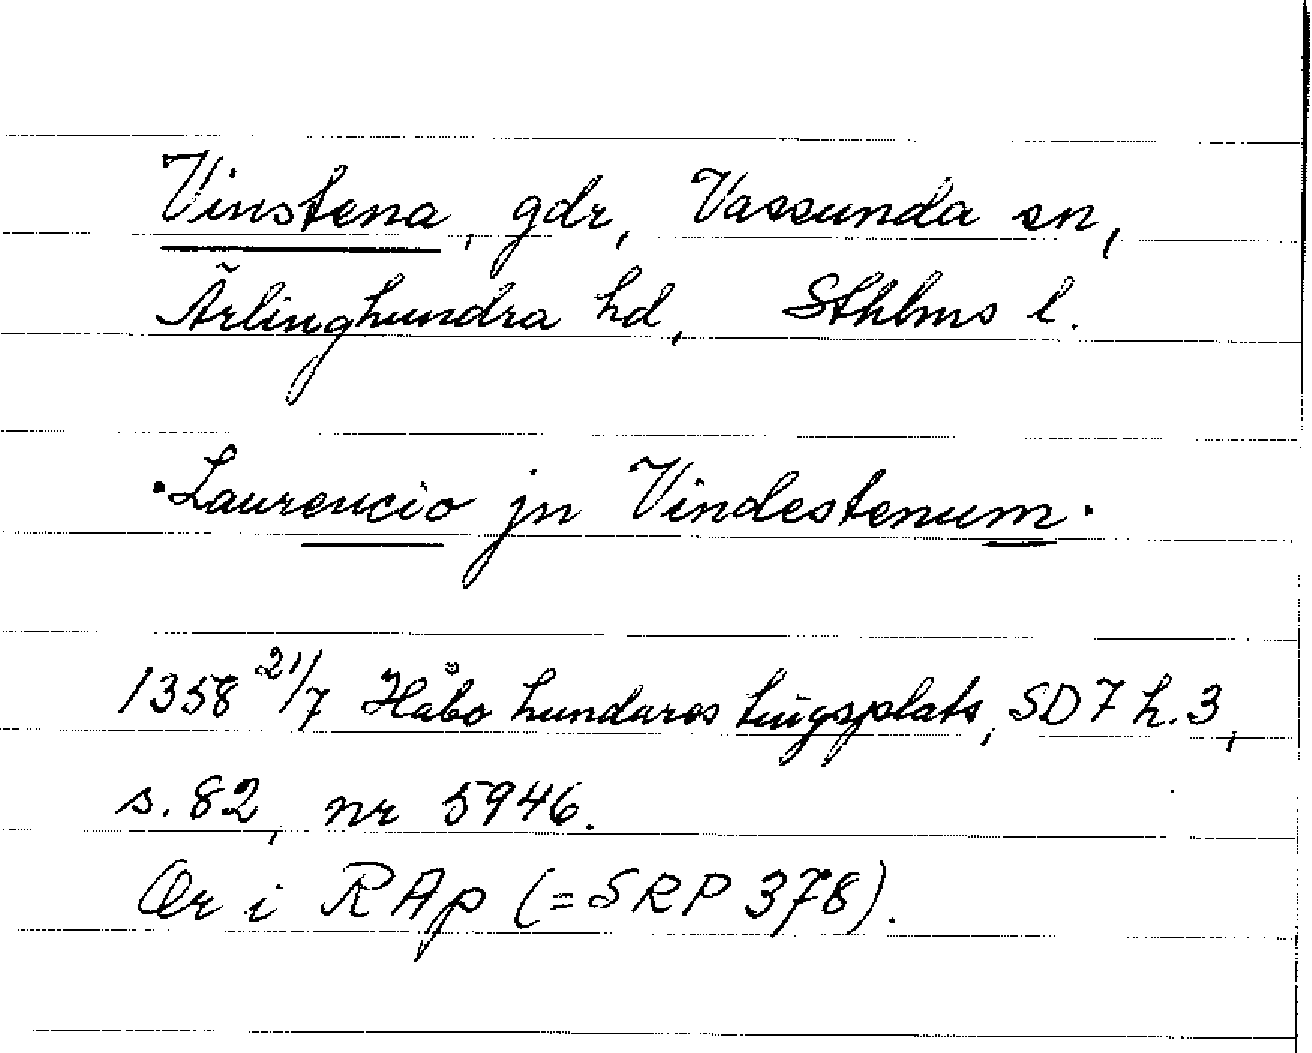 Vinstena, gdr, Vassunda sn,
Ärlinghundra hd, Sthlms l.
·Laurencio jn Vindestenum·
1358 21/7 Håbo hundares tingsplats, SD 7 h. 3,
s. 82, nr 5946.
Or i RAp (=SRP 378).